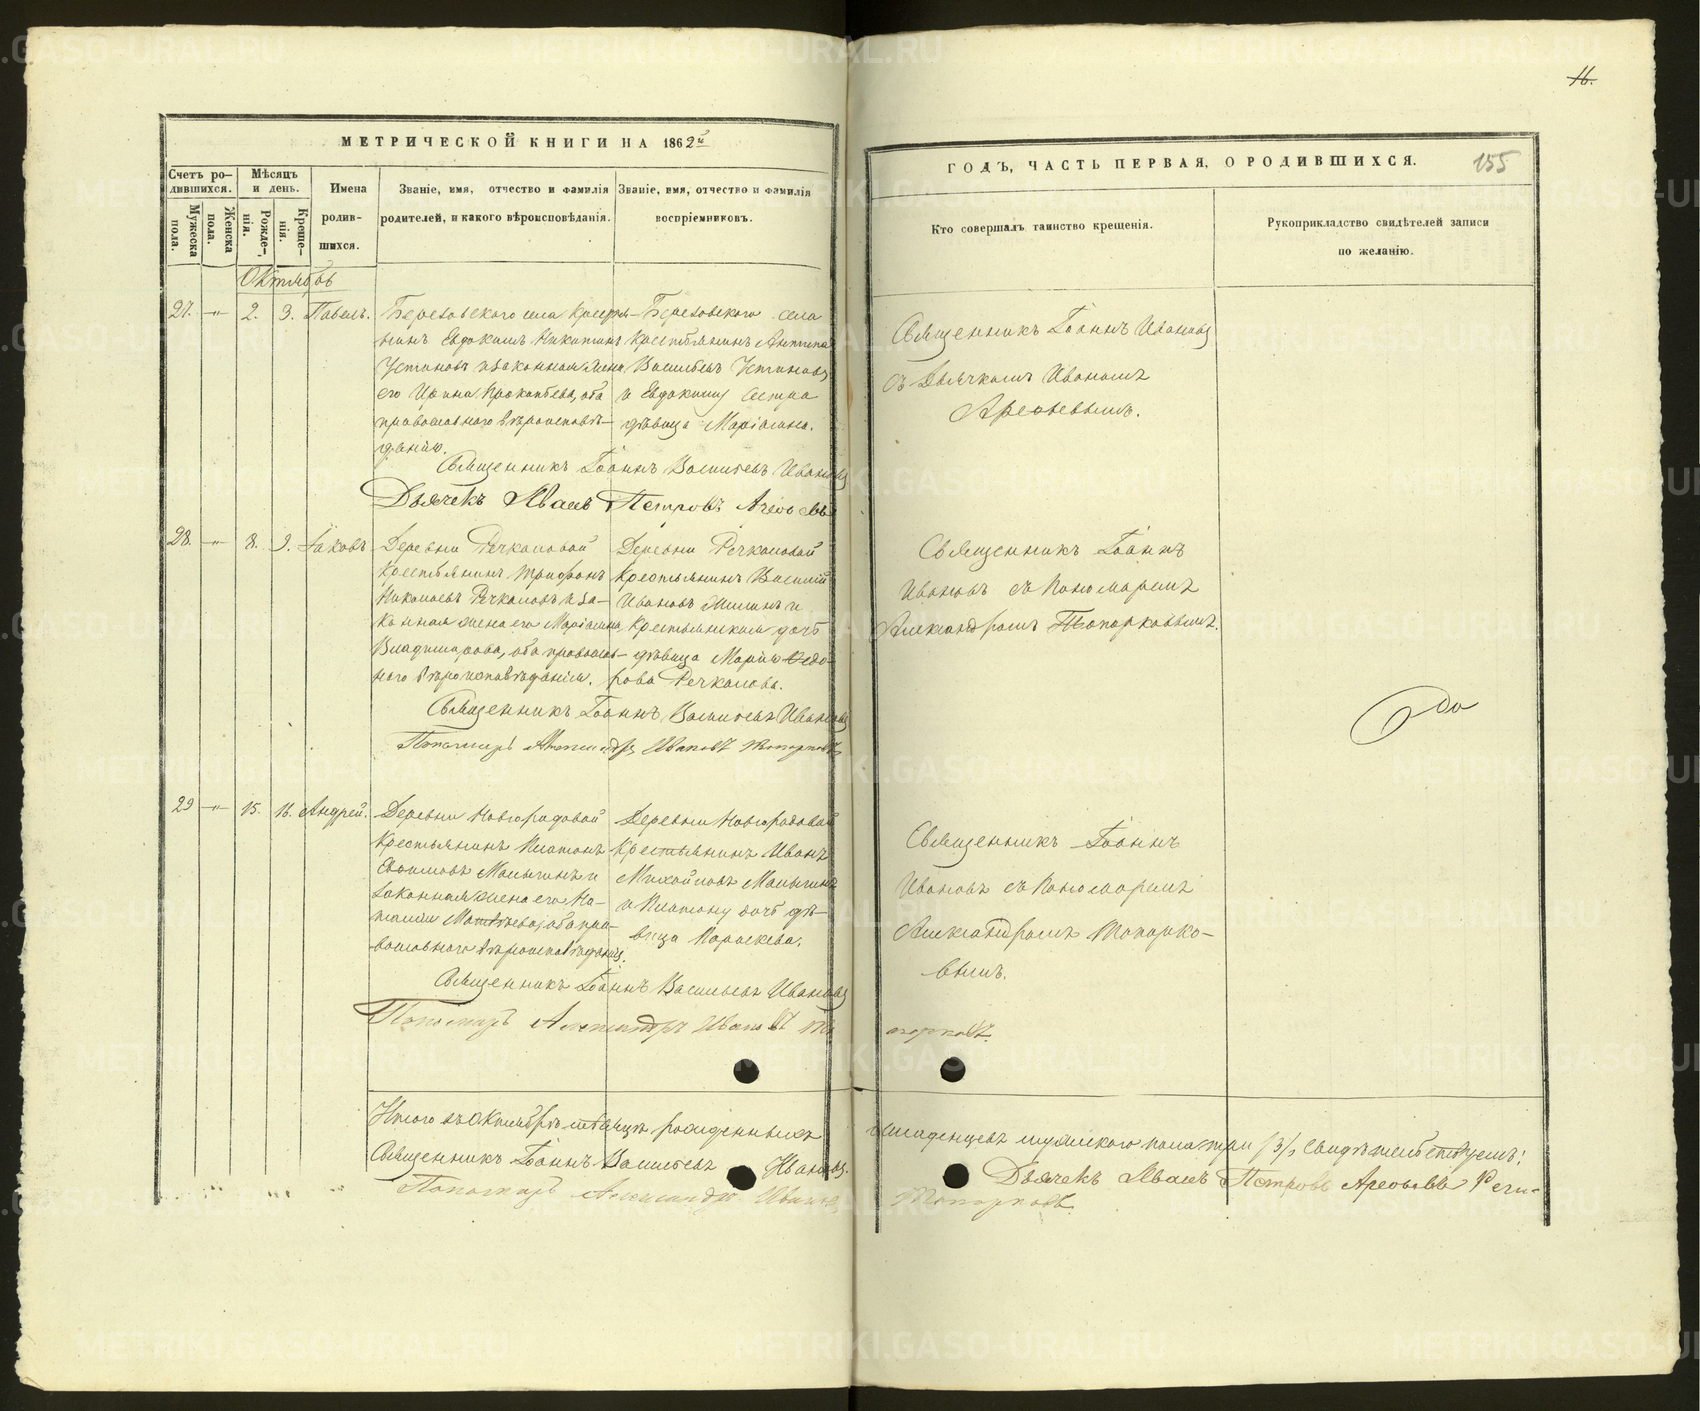 16.
МЕТРИЧЕСКОЙ КНИГИ НА 1862й
ГОДЪ, ЧАСТЬ ПЕРВАЯ, О РОДИВШИХСЯ.
155
Счетъ родившихся.
Мужеска пола.
Женска пола.
Мѣсяцъ и день.
Рожденія.
Крещенія.
Имена родившихся.
Званіе, имя, отчество и фамилія
родителей, и какого вѣроисповѣданія.
Званіе, имя, отчество и фамилія
воспріемниковъ.
Кто совершалъ таинство крещенія.
Рукоприкладство свидѣтелей записи
по желанію.
Октябрь
27. —"— 2. 3. Павелъ.
Березовскаго села Крестья-
нинъ Евдокимъ Никитинъ
Устиновъ и законная жена
его Ирина Прокопьева, оба
православнаго вѣроисповѣ-
данія.
Березовскаго села
Крестьянинъ Антипа
Васильевъ Устиновъ
и Евдокиму сестра
дѣвица Маріамна.
Священникъ Іоаннъ Ивановъ
съ Дьячкомъ Иваномъ
Арефьевымъ.
Священникъ Іоаннъ Васильевъ Ивановъ
Дьячекъ Иванъ Петровъ Арефьевъ
28. —"— 8. 9. Іаковъ
Деревни Речкаловой
Крестьянинъ Трифонъ
Николаевъ Речкаловъ и за-
конная жена его Маріамна
Владимірова, оба православ-
наго вѣроисповѣданія.
Деревни Речкаловой
Крестьянинъ Василій
Ивановъ и
Крестьянская дочь
дѣвица Марія Ѳедо-
рова Речкалова.
Священникъ Іоаннъ
Ивановъ съ Пономаремъ
Александромъ Топорковымъ.
Священникъ Іоаннъ Васильевъ Ивановъ
Пономарь Александръ Ивановъ Топорковъ
29 —"— 15. 16. Андрей.
Деревни Новгородовой
Крестьянинъ Платонъ
Малыгинъ и
законная жена его На-
талія Матвѣева, оба пра-
вославнаго вѣроисповѣданія.
Деревни Новгородовой
Крестьянинъ Иванъ
Михайловъ Малыгинъ
и Платону дочь дѣ-
вица Параскева.
Священникъ Іоаннъ
Ивановъ съ Пономаремъ
Александромъ Топорко-
вымъ.
Священникъ Іоаннъ Васильевъ Ивановъ
Пономарь Александръ Ивановъ То
порковъ.
Итого въ Октябрѣ мѣсяцѣ рожденныхъ младенцевъ мужескаго пола три /3/, свидѣтельствуемъ:
Священникъ Іоаннъ Васильевъ Ивановъ. Дьячекъ Иванъ Петровъ Арефьевъ
Пономарь Александръ Ивановъ Топорковъ.
METRIKI.GASO-URAL.RU